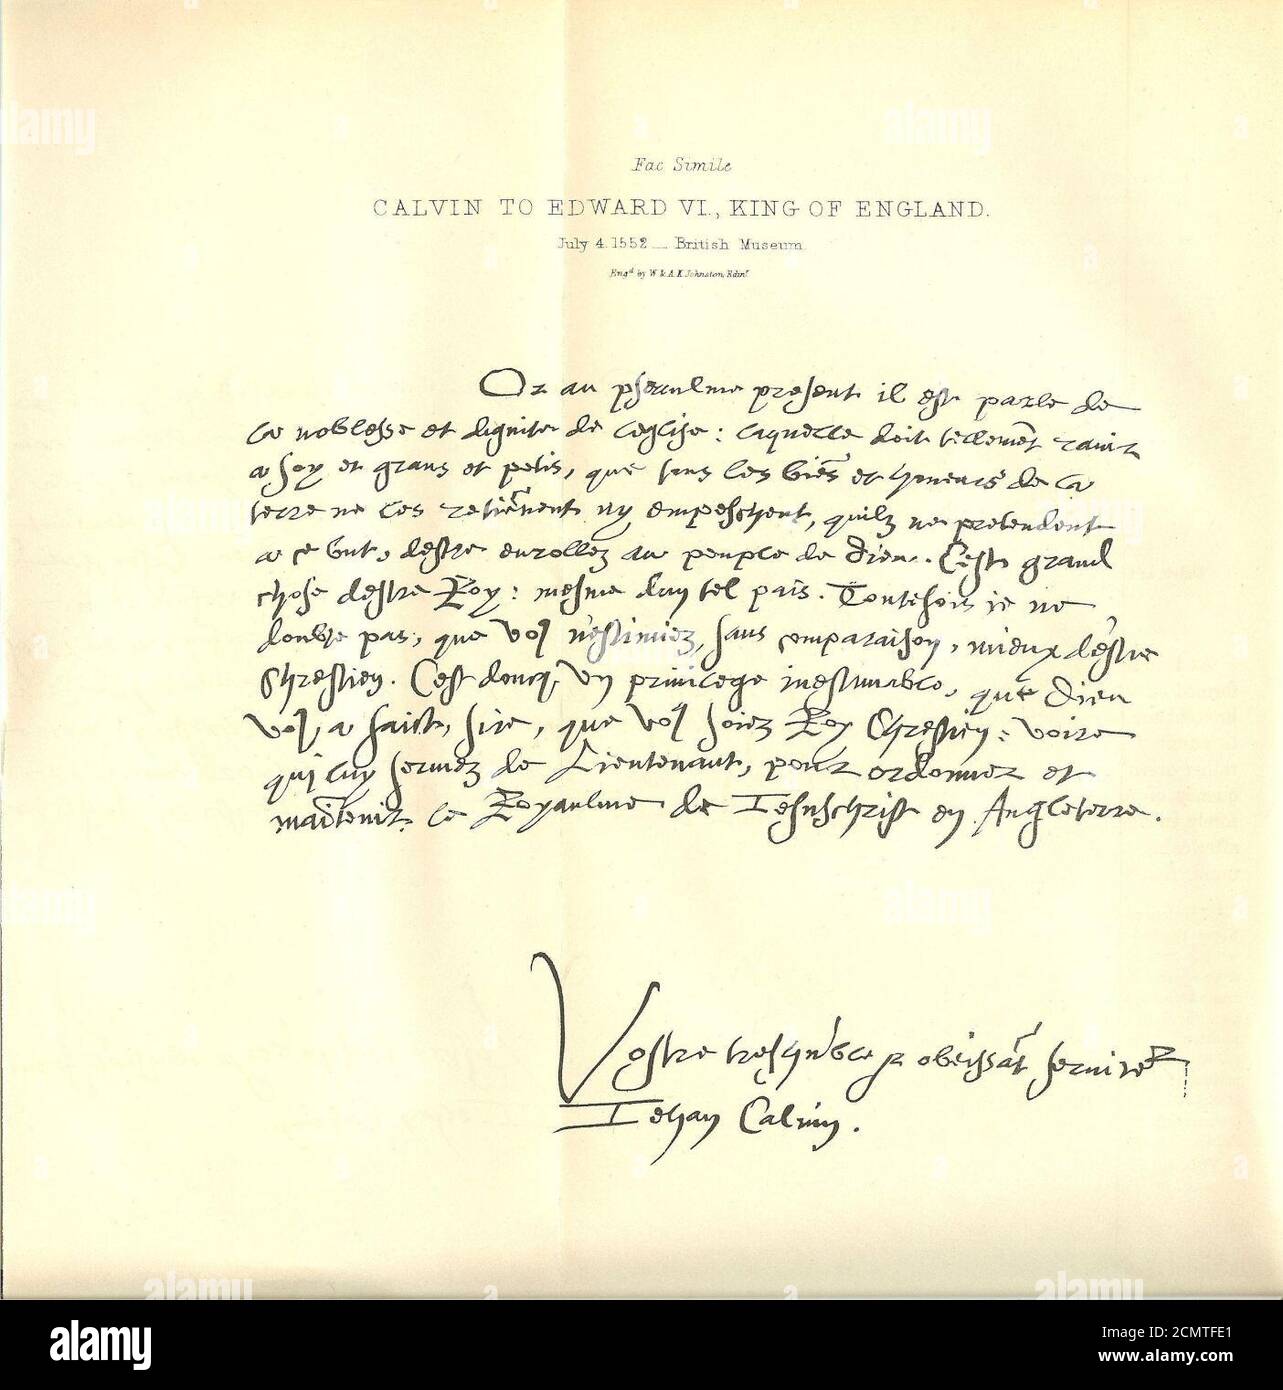 Fac Simile
CALVIN TO EDWARD VI., KING OF ENGLAND.
July 4. 1552 — British Museum.
Engd by W. & A. K. Johnston, Edinr
Or au pseaulme present il est parle de
la noblesse et dignite de leglise: laquelle doit tellemẽt ravir
a soy et grans et petis, que tous les biẽs et honeurs de la
terre ne les retiẽnent ny empeschent, quilz ne pretendent
a ce but, destre enrollez au peuple de Dieu. Cest grand
chose destre Roy: mesme dun tel pais. Toutefois je ne
doubte pas, que voꝰ n'estimiez, sans comparaison, mieux d'estre
Chrestien. C'est doncq vn privilege inestimable, que Dieu
voꝰ a faict, sire, que voꝰ soiez Roy Chrestien: voire
qui luy servez de Lieutenant, pour ordonner et
maĩtenir le Royaulme de Iesuschrist en Angleterre.
Vostre treshũble et obeissãt serviteur
Iehan Calvin.
alamy
Image ID: 2CMTFE1
www.alamy.com